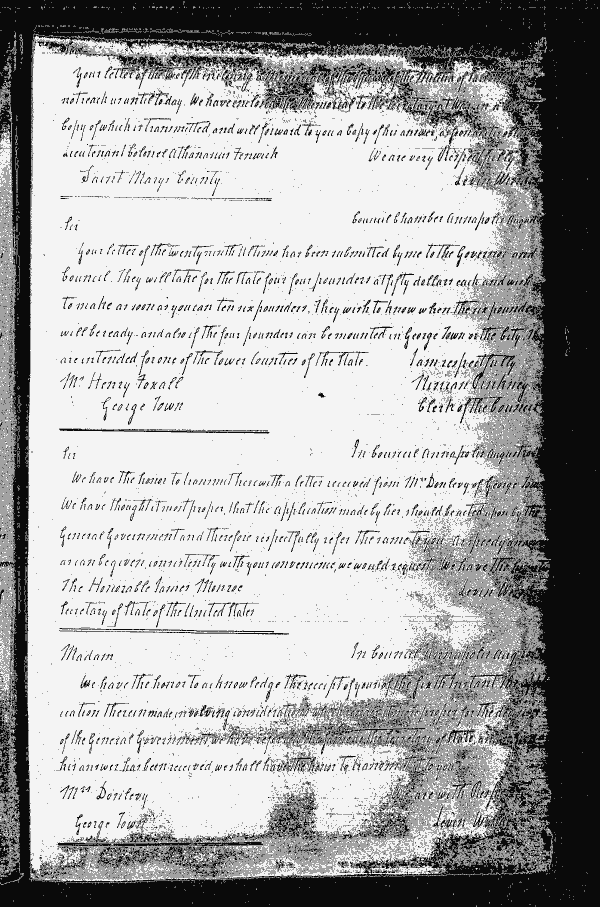 Your letter of the twelfth enclosing the Militia of
not reach us until to day. We have enclosed the Memorial to the
copy of which is transmitted and will forward to you a copy of his answer, as soon as
Lieutenant Colonel Athanasius Fenwick We are very Respectfully
Saint Marys County Levin
Council Chamber Annapolis August
Sir
Your letter of the twenty ninth Ultimo has been submitted by me to the Governor and
Council. They will take for the State four four pounders at fifty dollars each and wish
to make as soon as you can ten six pounders. They wish to know when the six pounders
will be ready - and also if the four pounders can be mounted in George Town or the City.
are intended for one of the lower Counties of the State. I am respectfully
Mr Henry Foxall Ninian Pinkney
George Town Clerk of the Council
Sir In Council Annapolis August
We have the honor to transmit herewith a letter received from Mrs Donlevy of George Town
We have thought it most proper, that the application made by her, should be acted upon by the
General Government and therefore respectfully refer the same to you. As speedy
as can be given, consistently with your convenience, we would request. We have the
The Honorable James Monroe Levin
Secretary of State of the United States
Madam In Council Annapolis Aug
We have the honor to acknowledge the receipt of yours of the sixth Instant
cation therein made involving considerations proper for the
of the General Government, we have the Secretary of State,
his answer has been received, we shall have the honor to transmit it to you.
Mrs Donlevy We are with Resp
George Town Levin